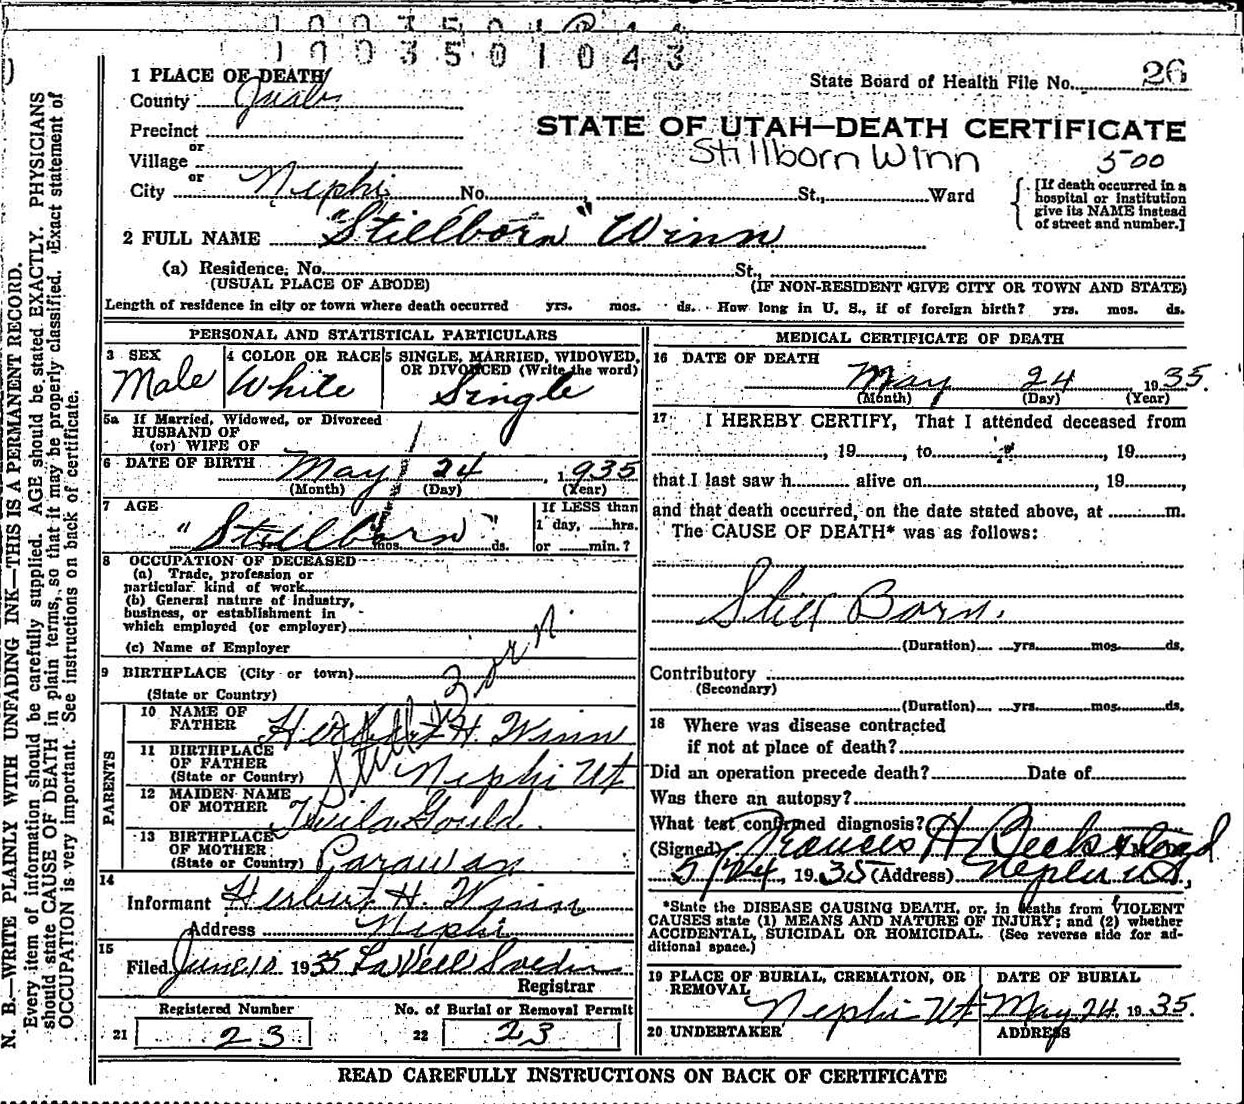 1003501043
1 PLACE OF DEATH
State Board of Health File No. 26
County Juab
STATE OF UTAH—DEATH CERTIFICATE
Precinct
or
Village
Stillborn Winn 500
or
City Nephi No. St., Ward
[If death occurred in a hospital or institution give its NAME instead of street and number.]
2 FULL NAME "Stillborn" Winn
(a) Residence, No. St.,
(USUAL PLACE OF ABODE) (IF NON-RESIDENT GIVE CITY OR TOWN AND STATE)
Length of residence in city or town where death occurred yrs. mos. ds. How long in U. S., if of foreign birth? yrs. mos. ds.
PERSONAL AND STATISTICAL PARTICULARS
3 SEX
Male
4 COLOR OR RACE
White
5 SINGLE, MARRIED, WIDOWED,
OR DIVORCED (Write the word)
Single
5a If Married, Widowed, or Divorced
HUSBAND OF
(or) WIFE OF
6 DATE OF BIRTH May 24, 1935
(Month) (Day) (Year)
7 AGE
"Stillborn"
mos. ds.
If LESS than
1 day, hrs.
or min.?
8 OCCUPATION OF DECEASED
(a) Trade, profession or
particular kind of work
(b) General nature of industry,
business, or establishment in
which employed (or employer)
(c) Name of Employer
9 BIRTHPLACE (City or town)
(State or Country)
Still Born
PARENTS
10 NAME OF
FATHER Herbert H. Winn
11 BIRTHPLACE
OF FATHER
(State or Country) Nephi Ut
12 MAIDEN NAME
OF MOTHER Gould
13 BIRTHPLACE
OF MOTHER
(State or Country) Parawan
14
Informant Herbert H. Winn
Address Nephi
15
Filed June 10 1935 LaVell
Registrar
Registered Number
21 23
No. of Burial or Removal Permit
22 23
MEDICAL CERTIFICATE OF DEATH
16 DATE OF DEATH
May 24 1935.
(Month) (Day) (Year)
17 I HEREBY CERTIFY, That I attended deceased from
, 19, to , 19,
that I last saw h alive on , 19,
and that death occurred, on the date stated above, at m.
The CAUSE OF DEATH* was as follows:
Still Born.
(Duration) yrs. mos. ds.
Contributory
(Secondary)
(Duration) yrs. mos. ds.
18 Where was disease contracted
if not at place of death?
Did an operation precede death? Date of
Was there an autopsy?
What test confirmed diagnosis?
(Signed) Frances H Beckstrand
5/24, 1935 (Address) Nephi Ut,
*State the DISEASE CAUSING DEATH, or, in deaths from VIOLENT
CAUSES state (1) MEANS AND NATURE OF INJURY; and (2) whether
ACCIDENTAL, SUICIDAL OR HOMICIDAL. (See reverse side for ad-
ditional space.)
19 PLACE OF BURIAL, CREMATION, OR
REMOVAL
Nephi Ut
DATE OF BURIAL
May 24 1935.
20 UNDERTAKER
ADDRESS
READ CAREFULLY INSTRUCTIONS ON BACK OF CERTIFICATE
N. B.—WRITE PLAINLY WITH UNFADING INK—THIS IS A PERMANENT RECORD.
Every item of information should be carefully supplied. AGE should be stated EXACTLY. PHYSICIANS
should state CAUSE OF DEATH in plain terms, so that it may be properly classified. Exact statement of
OCCUPATION is very important. See instructions on back of certificate.